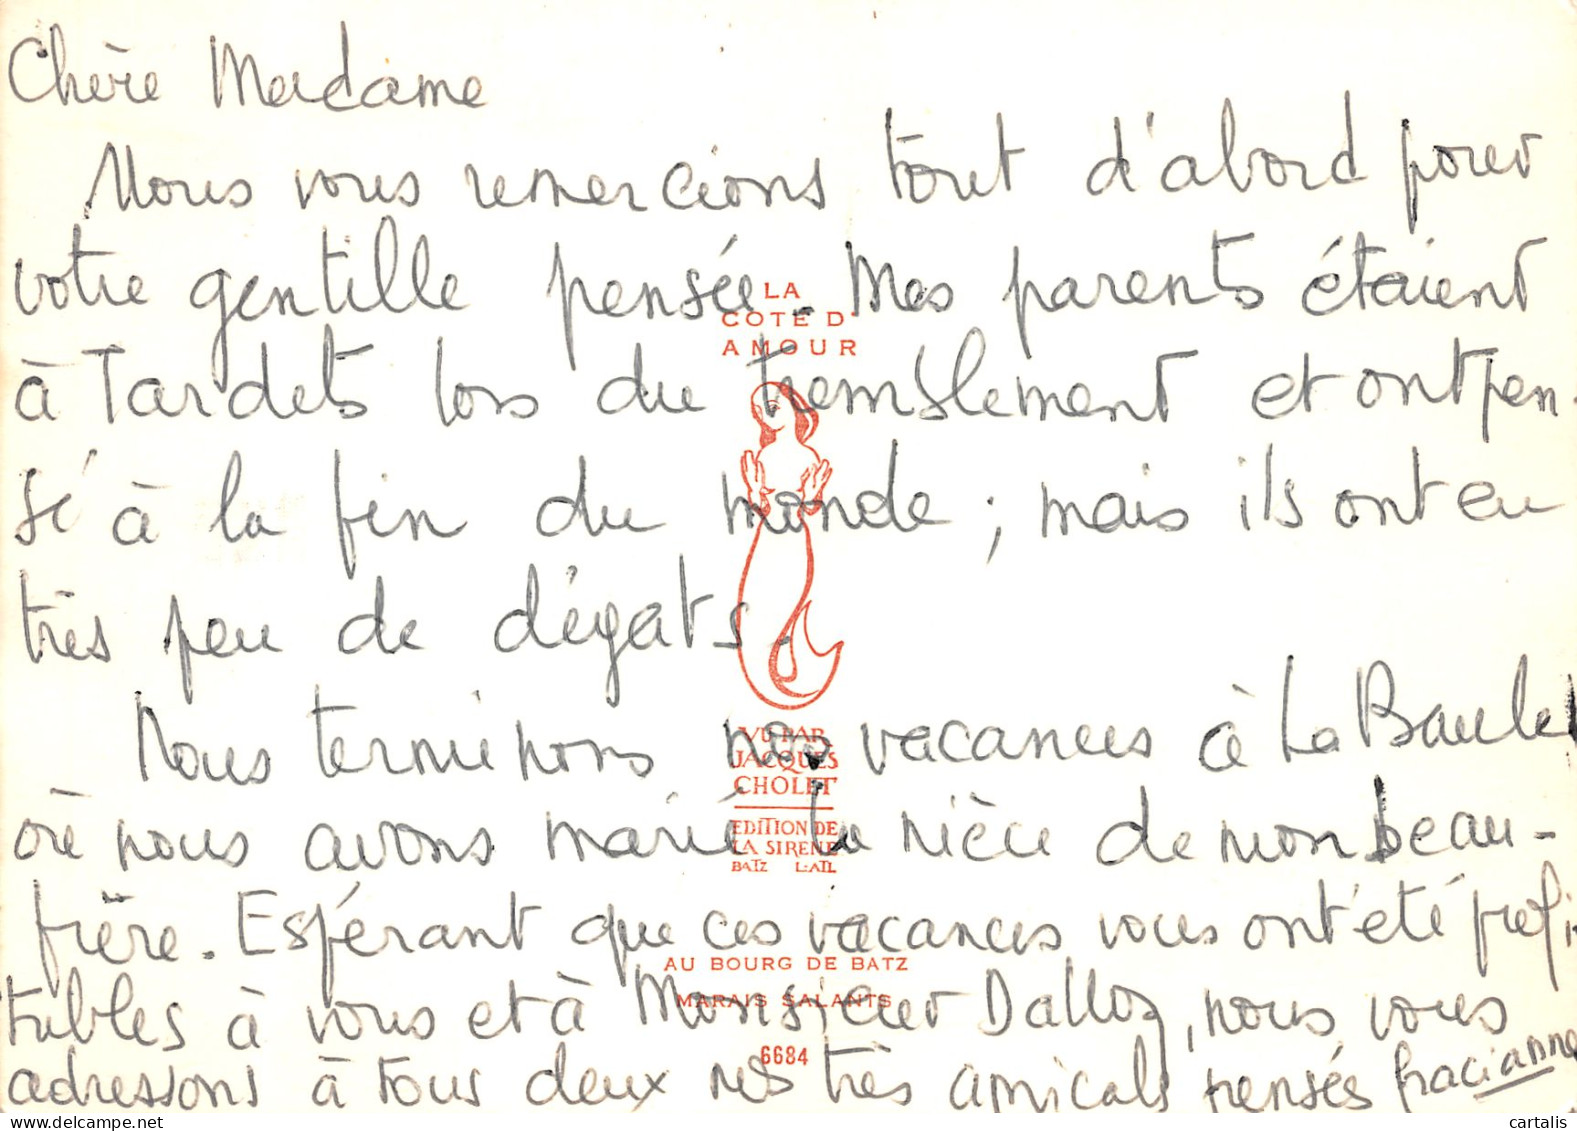 Chère Madame
Nous vous remercions tout d'abord pour
votre gentille pensée. Mes parents étaient
à Tardets lors du tremblement et ont pen-
sé à la fin du monde ; mais ils ont eu
très peu de dégats.
Nous terminons nos vacances à La Baule
où nous avons marié la nièce de mon beau-
frère. Espérant que ces vacances vous ont été profi-
tables à vous et à Monsieur Dalloz, nous vous
adressons à tous deux nos très amicales pensées
LA
COTE D'
AMOUR
VU PAR
JACQUES
CHOLET
EDITION DE
LA SIRENE
BATZ L.-ATL
AU BOURG DE BATZ
MARAIS SALANTS
6684
cartalis.com